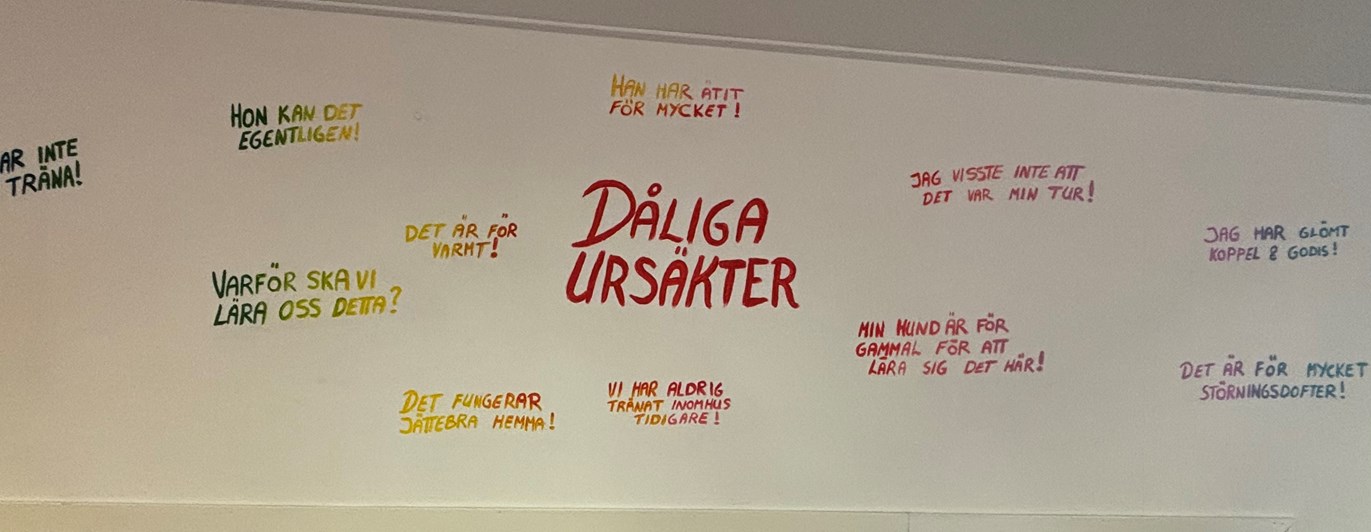 AR INTE
TRÄNA!
HON KAN DET
EGENTLIGEN!
HAN HAR ÄTIT
FÖR MYCKET!
DÅLIGA
URSÄKTER
DET ÄR FÖR
VARMT!
VARFÖR SKA VI
LÄRA OSS DETTA?
DET FUNGERAR
JÄTTEBRA HEMMA!
VI HAR ALDRIG
TRÄNAT INOMHUS
TIDIGARE!
JAG VISSTE INTE ATT
DET VAR MIN TUR!
MIN HUND ÄR FÖR
GAMMAL FÖR ATT
LÄRA SIG DET HÄR!
JAG HAR GLÖMT
KOPPEL & GODIS!
DET ÄR FÖR MYCKET
STÖRNINGSDOFTER!